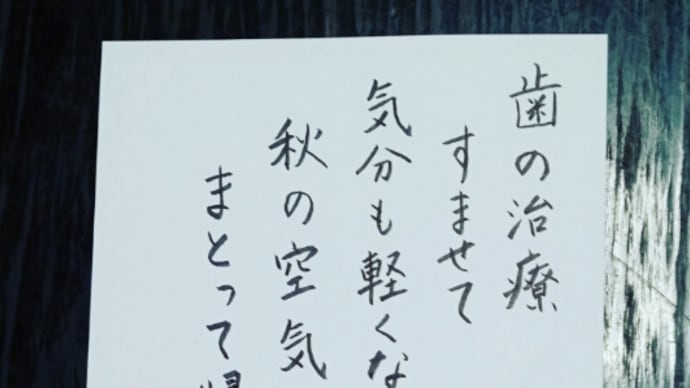 歯の治療
すませて
気分も軽くな
秋の空気
まとって